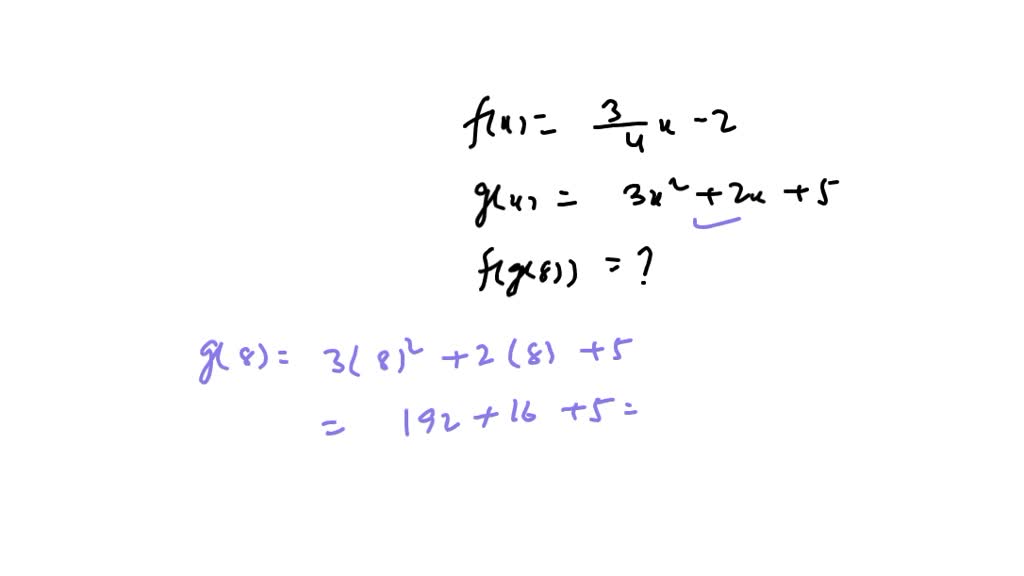 f(x) = 3/4 x - 2
g(x) = 3x² + 2x + 5
f(g(8)) = ?
g(8) = 3(8)² + 2(8) + 5
= 192 + 16 + 5 =